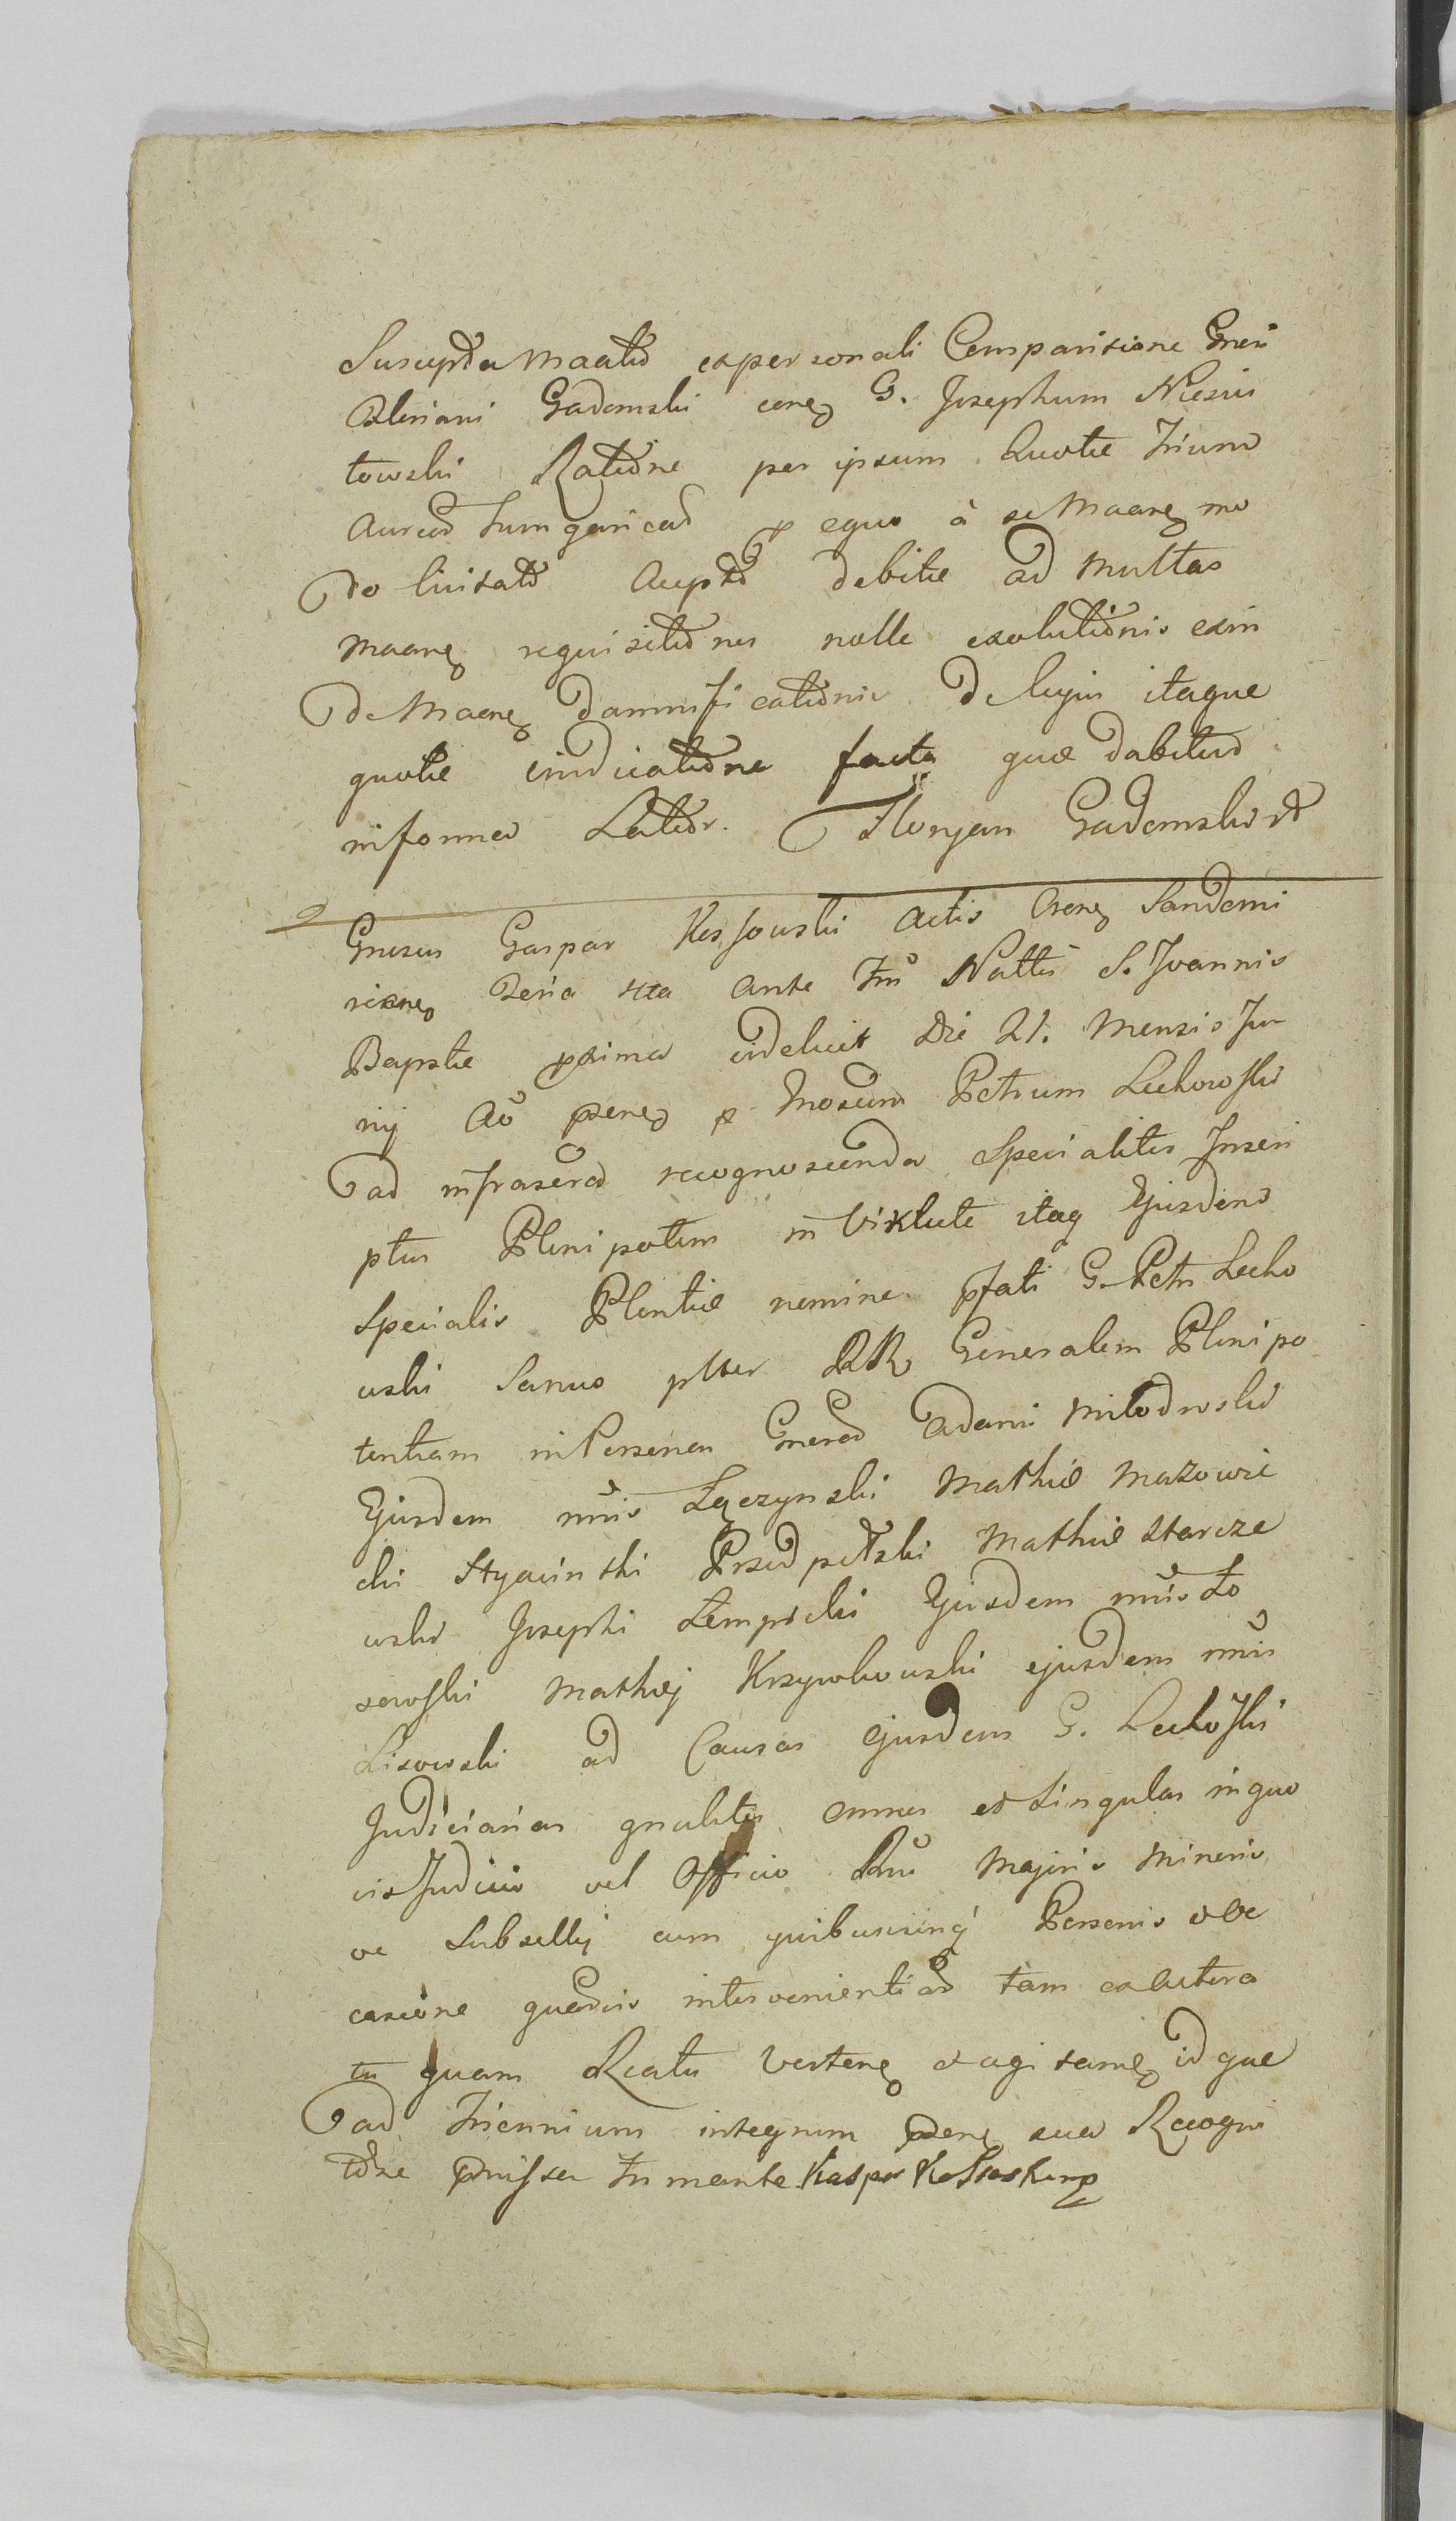 Suscepta Maatio ex personali Comparitione Gnesi
Floriani Gadomski cone G. Josephum Niesio
towski Ratione per ipsum Quotæ Trium
Aureor Hungarical p equo à se Maane mo
do licitato Accepto debitæ ad Multas
Maane requisitiones nolle exolutionis exin
de Maane damnificationis de cujus itaque
quotæ vindicatione facta quæ dabitur
in forma Latior. Floryan Gadomski
Gnesus Gaspar Kossowski Actis Osene Sandomi
riene Feria 4ta ante Fm Nattis S. Joannis
Baptæ proxima videlicet Die 21. Mensis Ju
nij Ao p Mosum Petrum Lechowski
ad infrascra recognoscenda Specialiter Inscri
ptus Plenipotens in Virtute itaq Ejusdem
Specialis Plentiæ nomine pfati G. Petri Lecho
wski Sanus ptter RR Generalem Plenipo
tentiam in Personas Gneror Adami Milodrowski
Ejusdem nnis Łączynski Mathiæ Mazowie
cki Hyacinthi Przedpełski Mathiæ Starcze
wski Josephi Łempicki Ejusdem nnis Lo
sowski Mathæj Krzywkowski ejusdem nnis
Lisowski ad Causas ejusdem G. Lechoski
Judiciarias gnaliter omnes et singulas in quo
vis Judicio vel Officio Rni Majoris Minoris
ve Subsellij cum quibuscunq Personis et oc
casione quavis intervenientias tam ex Actora
tu quam Reatu vertene et agitane idque
ad Triennium integrum sua Recogni
tione pmissa In mante Kasper Kossoski mp